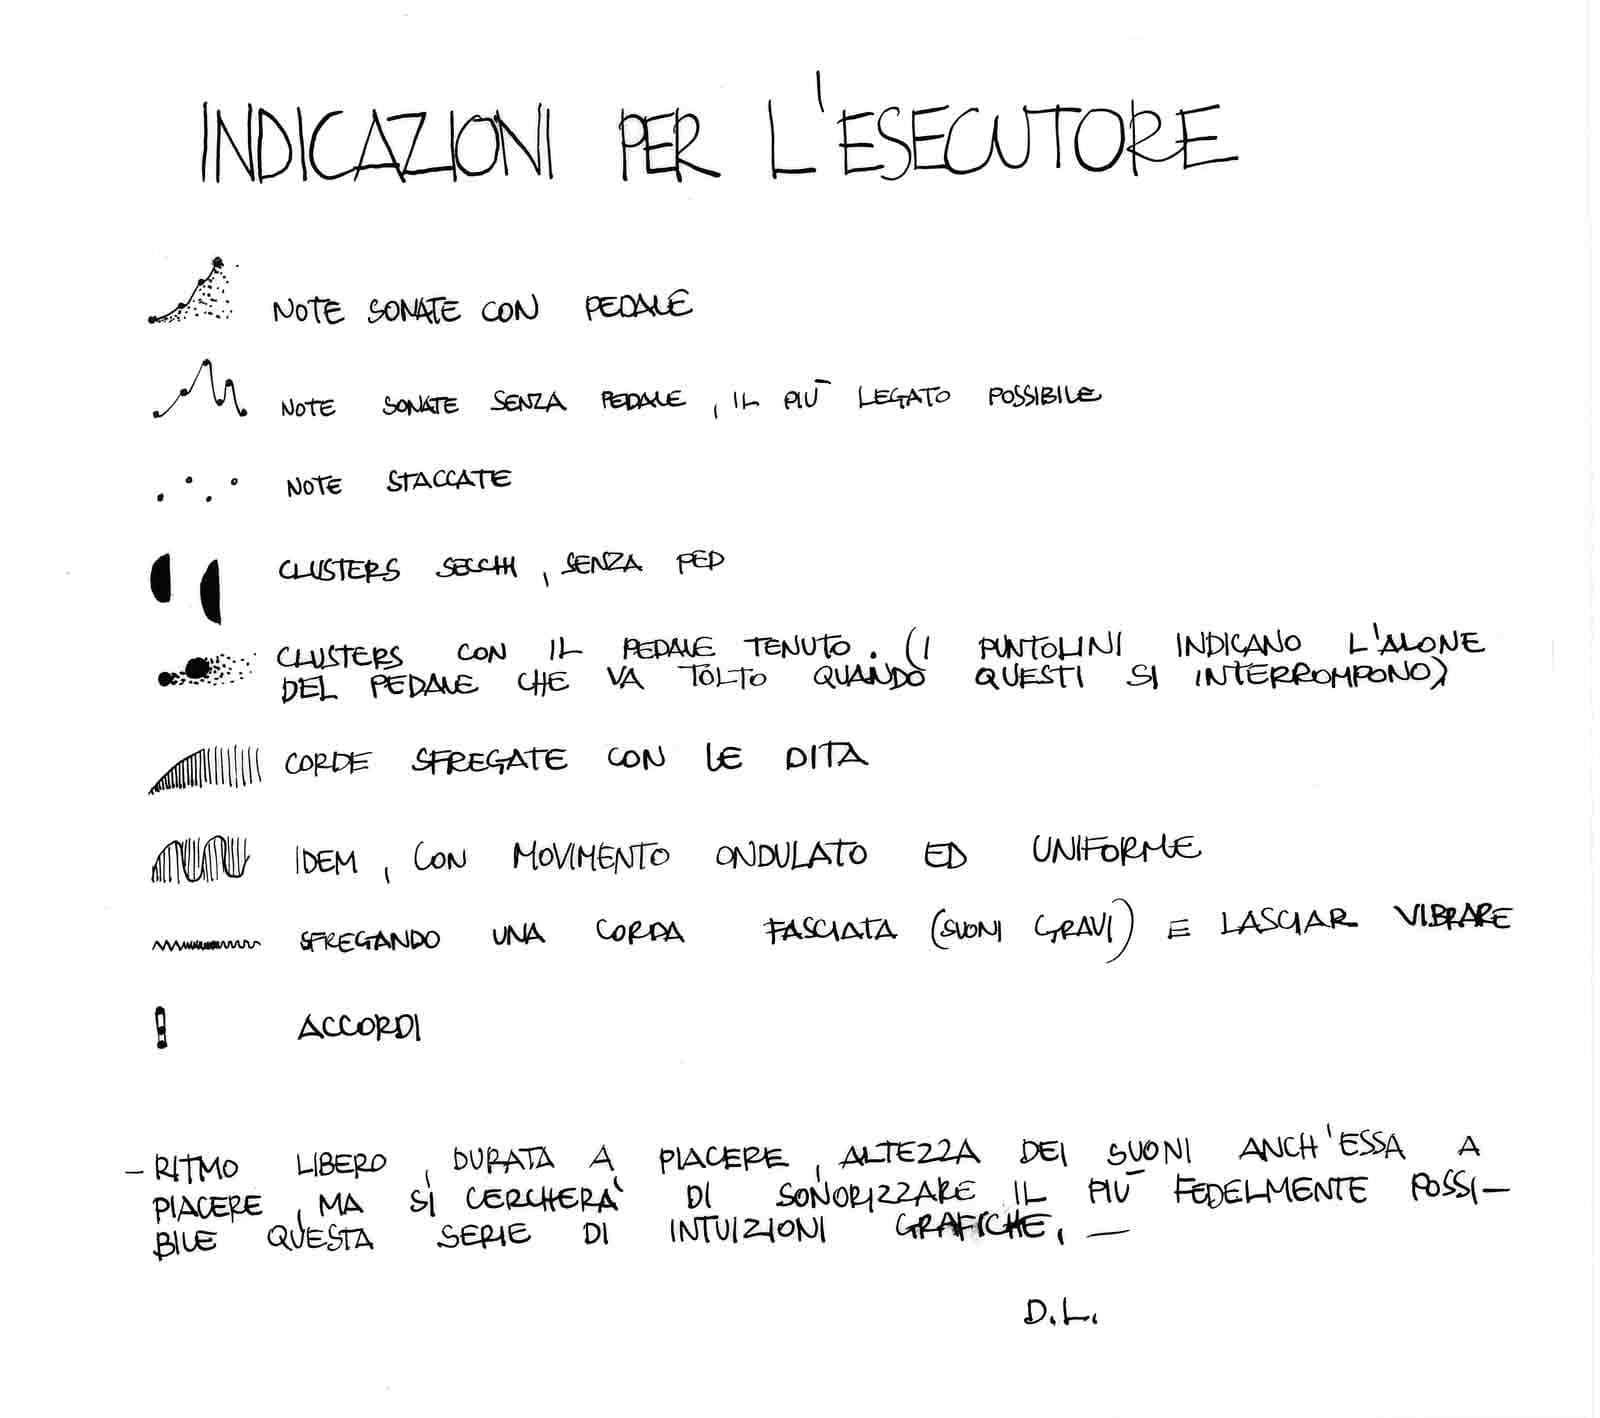 INDICAZIONI PER L'ESECUTORE
NOTE SONATE CON PEDALE
NOTE SONATE SENZA PEDALE, IL PIÙ LEGATO POSSIBILE
NOTE STACCATE
CLUSTERS SECCHI, SENZA PED
CLUSTERS CON IL PEDALE TENUTO. (I PUNTOLINI INDICANO L'ALONE
DEL PEDALE CHE VA TOLTO QUANDO QUESTI SI INTERROMPONO)
CORDE SFREGATE CON LE DITA
IDEM, CON MOVIMENTO ONDULATO ED UNIFORME
SFREGANDO UNA CORDA FASCIATA (SUONI GRAVI) E LASCIAR VIBRARE
ACCORDI
- RITMO LIBERO, DURATA A PIACERE, ALTEZZA DEI SUONI ANCH'ESSA A
PIACERE, MA SI CERCHERÀ DI SONORIZZARE IL PIÙ FEDELMENTE POSSI-
BILE QUESTA SERIE DI INTUIZIONI GRAFICHE. —
D.L.